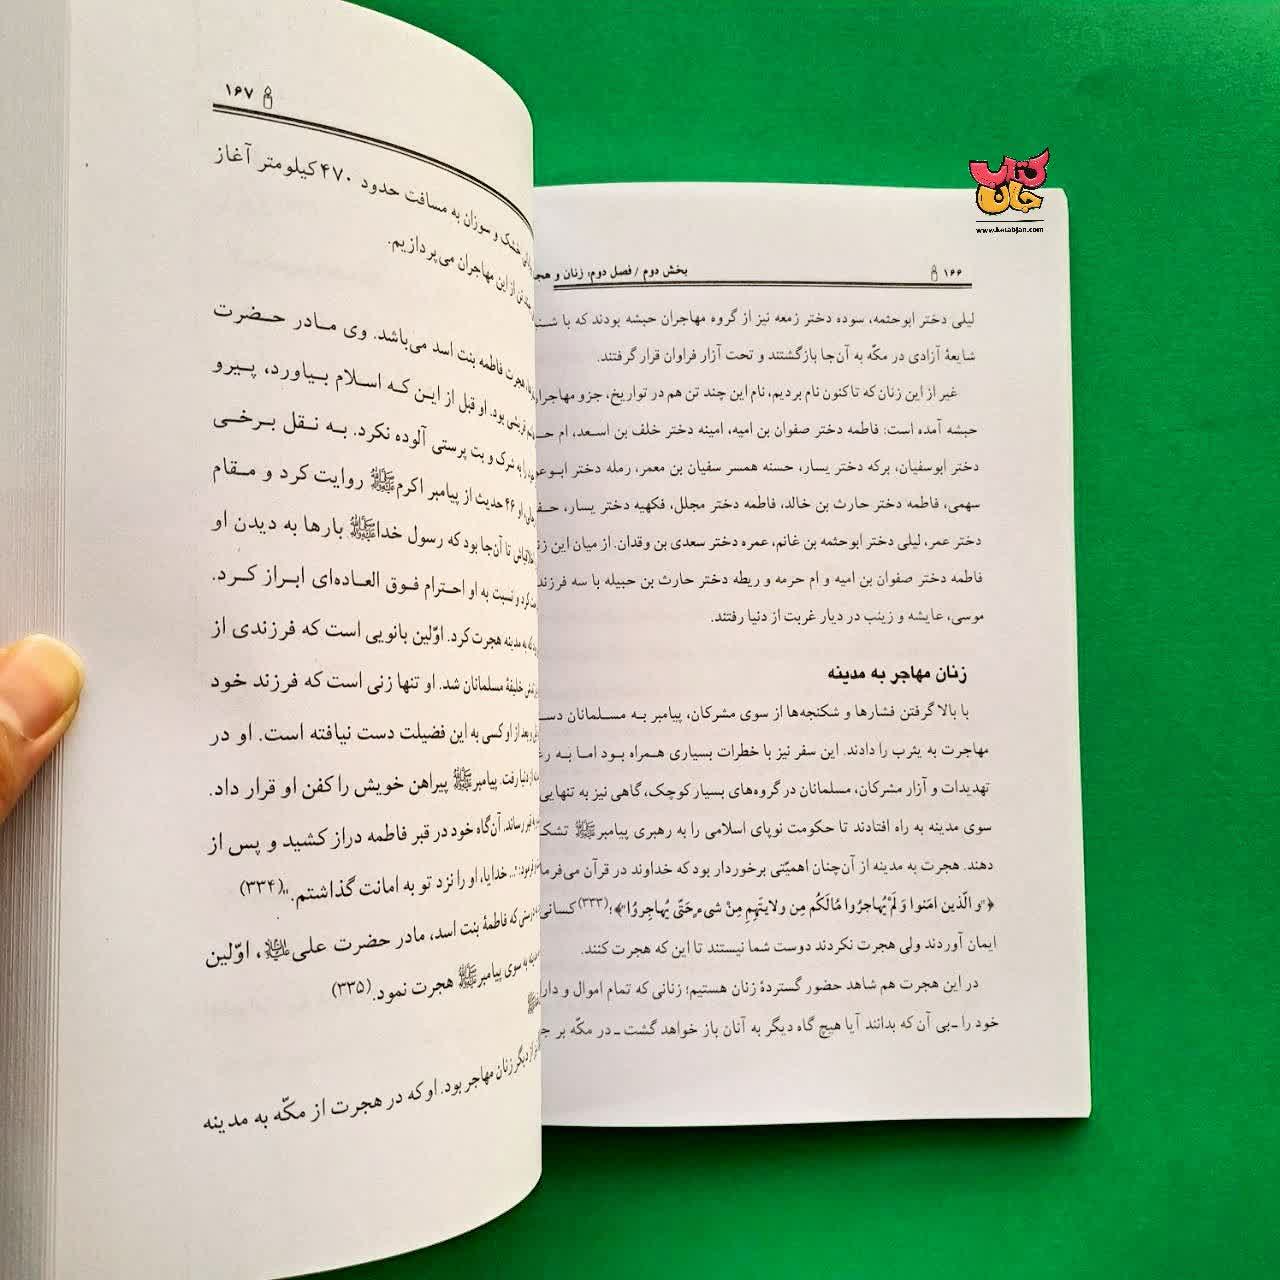 کتاب
جان
www.ketabjan.com
۱۶۶
بخش دوم / فصل دوم، زنان و هجر
لیلی دختر ابوحثمه، سوده دختر زمعه نیز از گروه مهاجران حبشه بودند که با
شایعهٔ آزادی در مکّه به آن‌جا بازگشتند و تحت آزار فراوان قرار گرفتند.
غیر از این زنان که تاکنون نام بردیم، نام این چند تن هم در تواریخ، جزو
حبشه آمده است: فاطمه دختر صفوان بن امیه، امینه دختر خلف بن اسعد، ام
دختر ابوسفیان، برکه دختر یسار، حسنه همسر سفیان بن معمر، رمله دختر
سهمی، فاطمه دختر حارث بن خالد، فاطمه دختر مجلل، فکهیه دختر یسار،
دختر عمر، لیلی دختر ابوحثمه بن غانم، عمره دختر سعدی بن وقدان. از میان این
فاطمه دختر صفوان بن امیه و ام حرمه و ریطه دختر حارث بن حبیله با سه فرزند
موسی، عایشه و زینب در دیار غربت از دنیا رفتند.
زنان مهاجر به مدینه
با بالا گرفتن فشارها و شکنجه‌ها از سوی مشرکان، پیامبر به مسلمانان
مهاجرت به یثرب را دادند. این سفر نیز با خطرات بسیاری همراه بود اما به
تهدیدات و آزار مشرکان، مسلمانان در گروه‌های بسیار کوچک، گاهی نیز به تنهایی
سوی مدینه به راه افتادند تا حکومت نوپای اسلامی را به رهبری پیامبرﷺ
دهند. هجرت به مدینه از آن‌چنان اهمیّتی برخوردار بود که خداوند در قرآن
﴿«و الّذین امَنوا وَ لَمْ یُهاجرُوا مُالَکُم مِن ولایتِهِم مِنْ شیءٍ حَتّی یُهاجِروُا»﴾؛(۳۳۳) کسانی
ایمان آوردند ولی هجرت نکردند دوست شما نیستند تا این که هجرت کنند.
در این هجرت هم شاهد حضور گستردهٔ زنان هستیم؛ زنانی که تمام اموال و
خود را ـ بی آن که بدانند آیا هیچ گاه دیگر به آنان باز خواهد گشت ـ در مکّه بر
۱۶۷
خشک و سوزان به مسافت حدود ۴۷۰ کیلومتر آغاز
تن از این مهاجران می‌پردازیم.
هجرت فاطمه بنت اسد می‌باشد. وی مادر حضرت
قریشی بود. او قبل از این که اسلام بیاورد، پیرو
را به شرک و بت پرستی آلوده نکرد. به نقل برخی
او ۴۶ حدیث از پیامبر اکرمﷺ روایت کرد و مقام
تا آن‌جا بود که رسول خداﷺ بارها به دیدن او
کرد و نسبت به او احترام فوق العاده‌ای ابراز کرد.
که به مدینه هجرت کرد. اوّلین بانویی است که فرزندی از
خلیفهٔ مسلمانان شد. او تنها زنی است که فرزند خود
و بعد از او کسی به این فضیلت دست نیافته است. او در
از دنیا رفت. پیامبرﷺ پیراهن خویش را کفن او قرار داد.
رساند. آن‌گاه خود در قبر فاطمه دراز کشید و پس از
فرمود: "... خدایا، او را نزد تو به امانت گذاشتم."(۳۳۴)
که فاطمهٔ بنت اسد، مادر حضرت علی علیه‌السلام، اوّلین
به سوی پیامبرﷺ هجرت نمود.(۳۳۵)
از دیگر زنان مهاجر بود. او که در هجرت از مکّه به مدینه